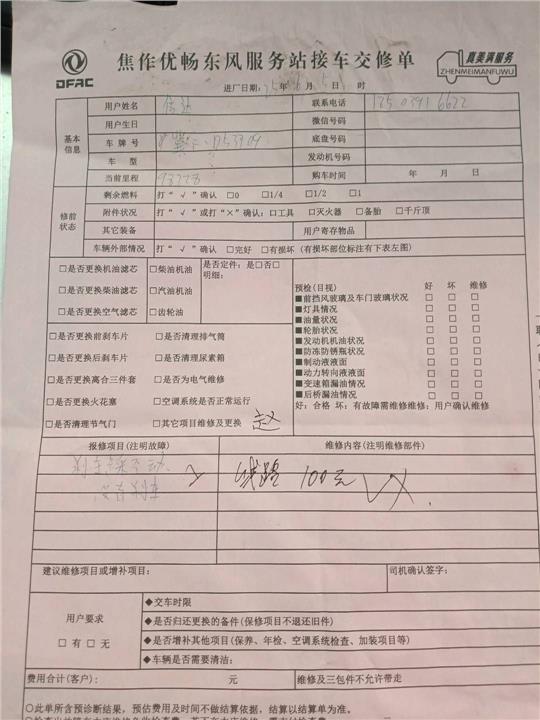 DFAC
焦作优畅东风服务站接车交修单
真美满服务
ZHENMEIMANFUWU
进厂日期: 年 月 日 时
基本信息
用户姓名 联系电话
用户生日 微信号码
车牌号 底盘号码
车型 发动机号码
当前里程 购车时间 年 月 日
修前状态
剩余燃料 打“√”确认 □0 □1/4 □1/2 □1
附件状况 打“√”或打“×”确认:□工具 □灭火器 □备胎 □千斤顶
其它装备 用户寄存物品
车辆外部情况 打“√”确认 □完好 □有损坏(有损坏部位标注有下表左图)
□是否更换机油滤芯 □柴油机油
□是否更换柴油滤芯 □汽油机油
□是否更换空气滤芯 □齿轮油
是否定件:是□否□
明细:
□是否更换前刹车片 □是否清理排气筒
□是否更换后刹车片 □是否清理尿素箱
□是否更换离合三件套 □是否为电气维修
□是否更换火花塞 □空调系统是否正常运行
□是否清理节气门 □其它项目维修及更换 赵
预检(目视) 好 坏 维修
■前挡风玻璃及车门玻璃状况 □ □ □
■灯具情况 □ □ □
■油量状况 □ □ □
■轮胎状况 □ □ □
■发动机机油状况 □ □ □
■防冻防锈瓶状况 □ □ □
■制动液液面 □ □ □
■动力转向液液面 □ □ □
■变速箱漏油情况 □ □ □
■后桥漏油情况 □ □ □
好:合格 坏:有故障需维修维修:用户确认维修
报修项目(注明故障) 维修内容(注明维修部件)
线路 100元
没有刹车
建议维修项目或增补项目: 司机确认签字:
用户要求
□有□无
◆交车时限
◆是否归还更换的备件(保修项目不退还旧件)
◆是否增补其他项目(保养、年检、空调系统检查、加装项目等)
◆车辆是否需要清洁:
费用合计(客户): 元 维修及三包件不允许带走
○此单所含预诊断结果,预估费用及时间不做结算依据,结算以结算单为准。